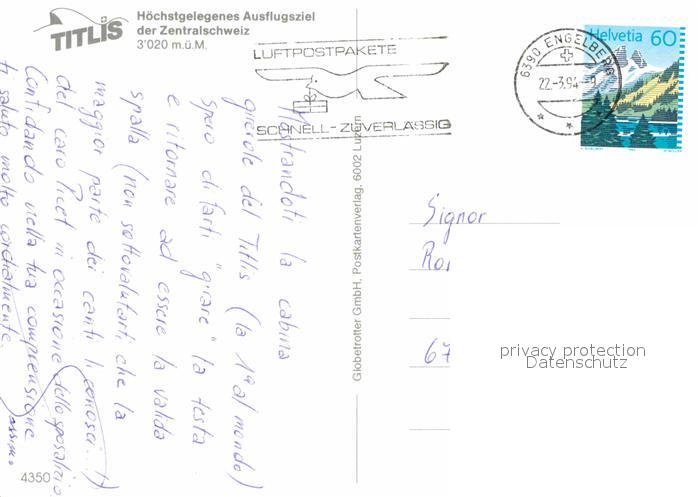 TITLIS
Höchstgelegenes Ausflugsziel
der Zentralschweiz
3'020 m.ü.M.
LUFTPOSTPAKETE
SCHNELL-ZUVERLÄSSIG
6390 ENGELBERG
22.-3.94
Helvetia 60
Mostrandoti la cabina
girevole del Titlis (la 1ª al mondo)
spero di farti "girare" la testa
e ritornare ad essere la valida
spalla (non sottovalutarti, che la
maggior parte dei canti li conosci...!)
del caro Picet in occasione dello sposalizio
Confidando nella tua comprensione
ti saluto molto cordialmente.
Massimo
Globetrotter GmbH, Postkartenverlag, 6002 Luzern
Signor
67
privacy protection
Datenschutz
4350